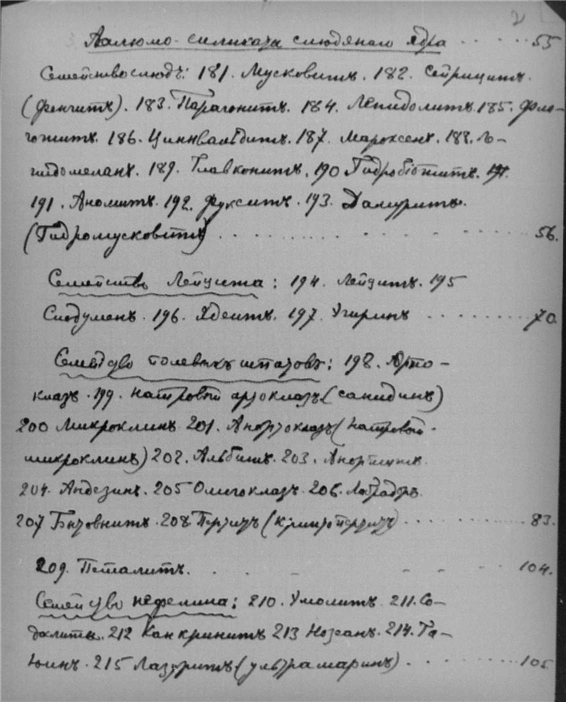 2
Алюмо-силикаты слюдяного ядра . . . . 55
Семейство слюдъ: 181. Мусковитъ. 182. Серицитъ
(фенгитъ). 183. Парагонитъ. 184. Лепидолитъ. 185. Фло-
гопитъ. 186. Циннвальдитъ. 187. Мароксенъ. 188. Ле-
пидомеланъ. 189. Главконитъ. 190 Гидробіотитъ.
191. Аномитъ. 192. Фукситъ. 193. Дамуритъ.
(Гидромусковитъ) . . . . . . . . . . 56.
Семейство Лейцита: 194. Лейцитъ. 195
Сподуменъ. 196. Жадеитъ. 197. Эгиринъ . . . . 70
Семейство полевыхъ шпатовъ: 198. Орто-
клазъ. 199. Натровый ортоклазъ (санидинъ)
200 Микроклинъ 201. Анортоклазъ (натровый-
микроклинъ) 202. Альбитъ. 203. Анортитъ
204. Андезинъ. 205 Олигоклазъ. 206. Лабрадоръ
207 Битовнитъ. 208 Пертитъ (криптопертитъ) . . . . . 83.
209. Петалитъ. . . . . . . . . 104.
Семейство нефелина: 210. 211. Со-
далитъ. 212 Канкринитъ 213 Нозеанъ. 214. Га-
юинъ. 215 Лазуритъ (ультрамаринъ) . . . . . . 105.